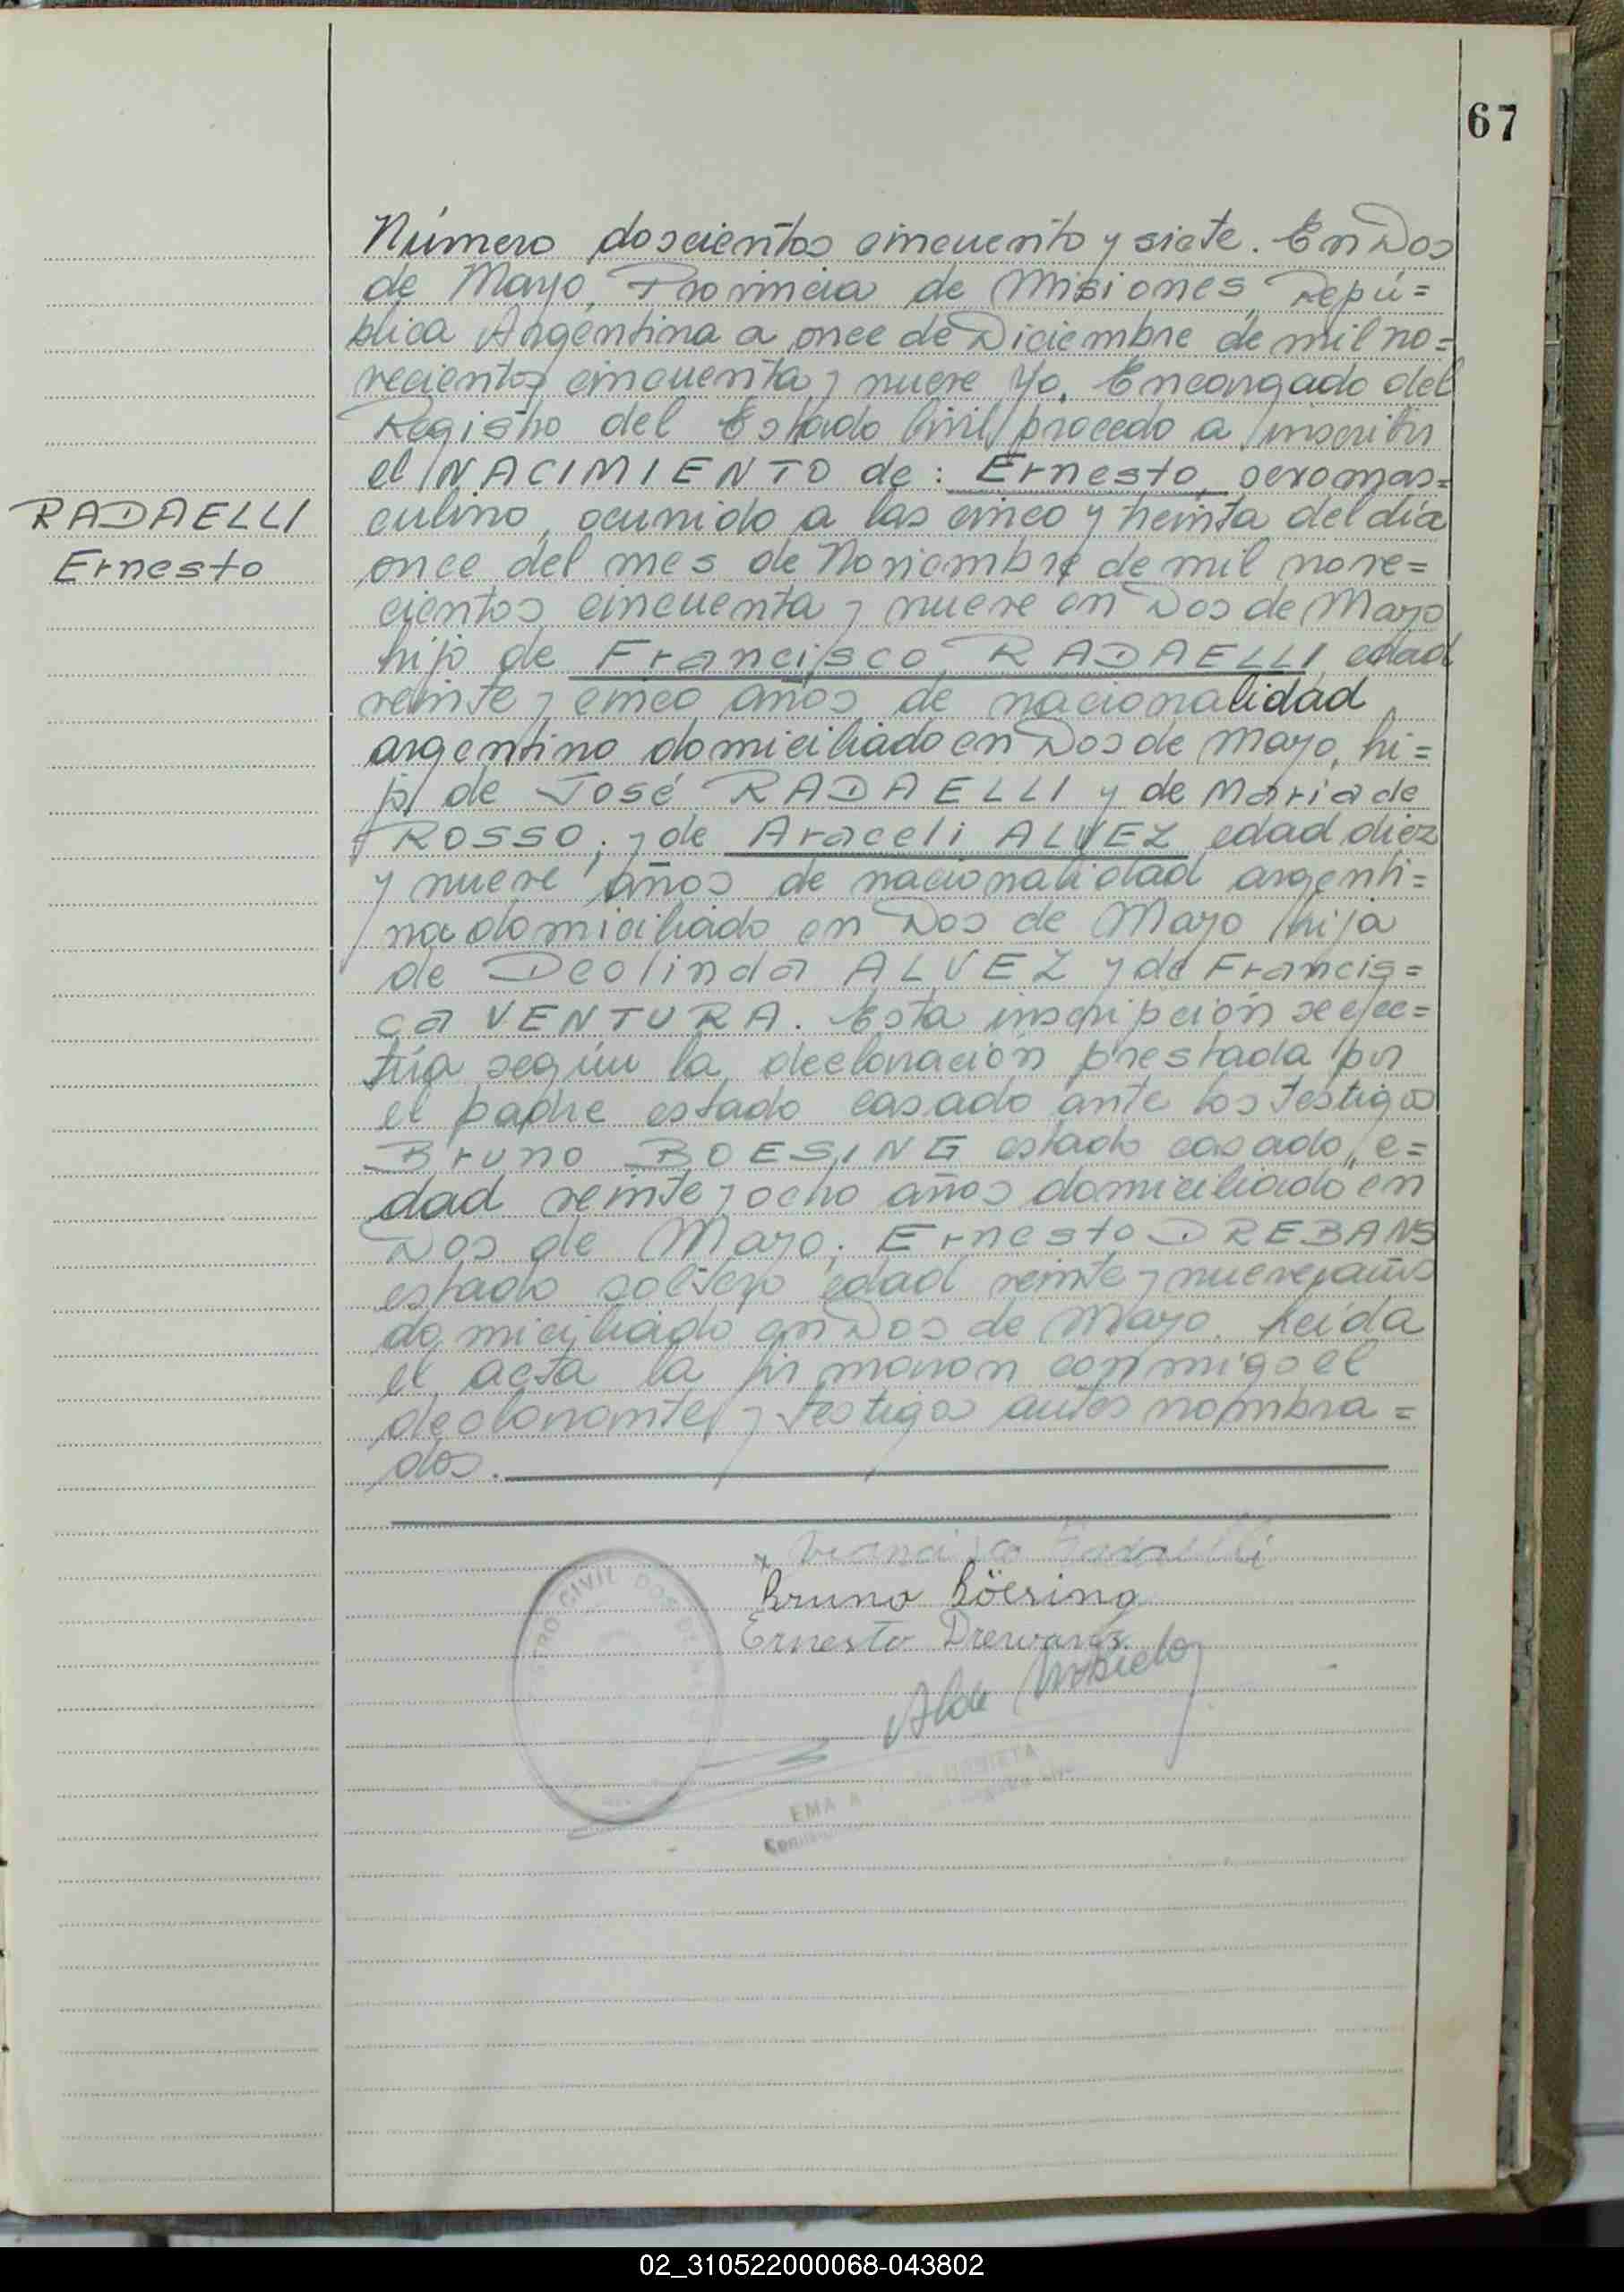 67
Número doscientos cincuento y siete. En Dos
de Mayo, Provincia de Misiones, Repú=
blica Argentina a once de Diciembre de mil no=
vecientos cincuenta y nueve Yo, Encargado del
Registro del Estado Civil procedo a inscribir
el NACIMIENTO de: Ernesto, sexo mas=
RADAELLI
culino, ocurrido a las cinco y treinta del día
Ernesto
once del mes de Noviembre de mil nove=
cientos cincuenta y nueve en Dos de Mayo
hijo de Francisco RADAELLI edad
veinte y cinco años de nacionalidad
argentino domiciliado en Dos de Mayo, hi=
jo de José RADAELLI y de María de
ROSSO; y de Araceli ALVEZ edad diez
y nueve años de nacionalidad argenti=
na domiciliado en Dos de Mayo hija
de Deolinda ALVEZ y de Francis=
ca VENTURA. Esta inscripción se efec=
túa según la declaración prestada por
el padre estado casado ante los testigos
Bruno BOESING estado casado, e=
dad veinte y ocho años domiciliado en
Dos de Mayo; Ernesto DREBANS
estado soltero edad veinte y nueve años
domiciliado en Dos de Mayo. Leída
el acta la firmaron conmigo el
declarante y testigos antes nombra=
dos.
x Francisco Radaelli
Bruno Böesing
Ernesto Drewans
CIVIL DOS DE
EMA A
02_310522000068-043802